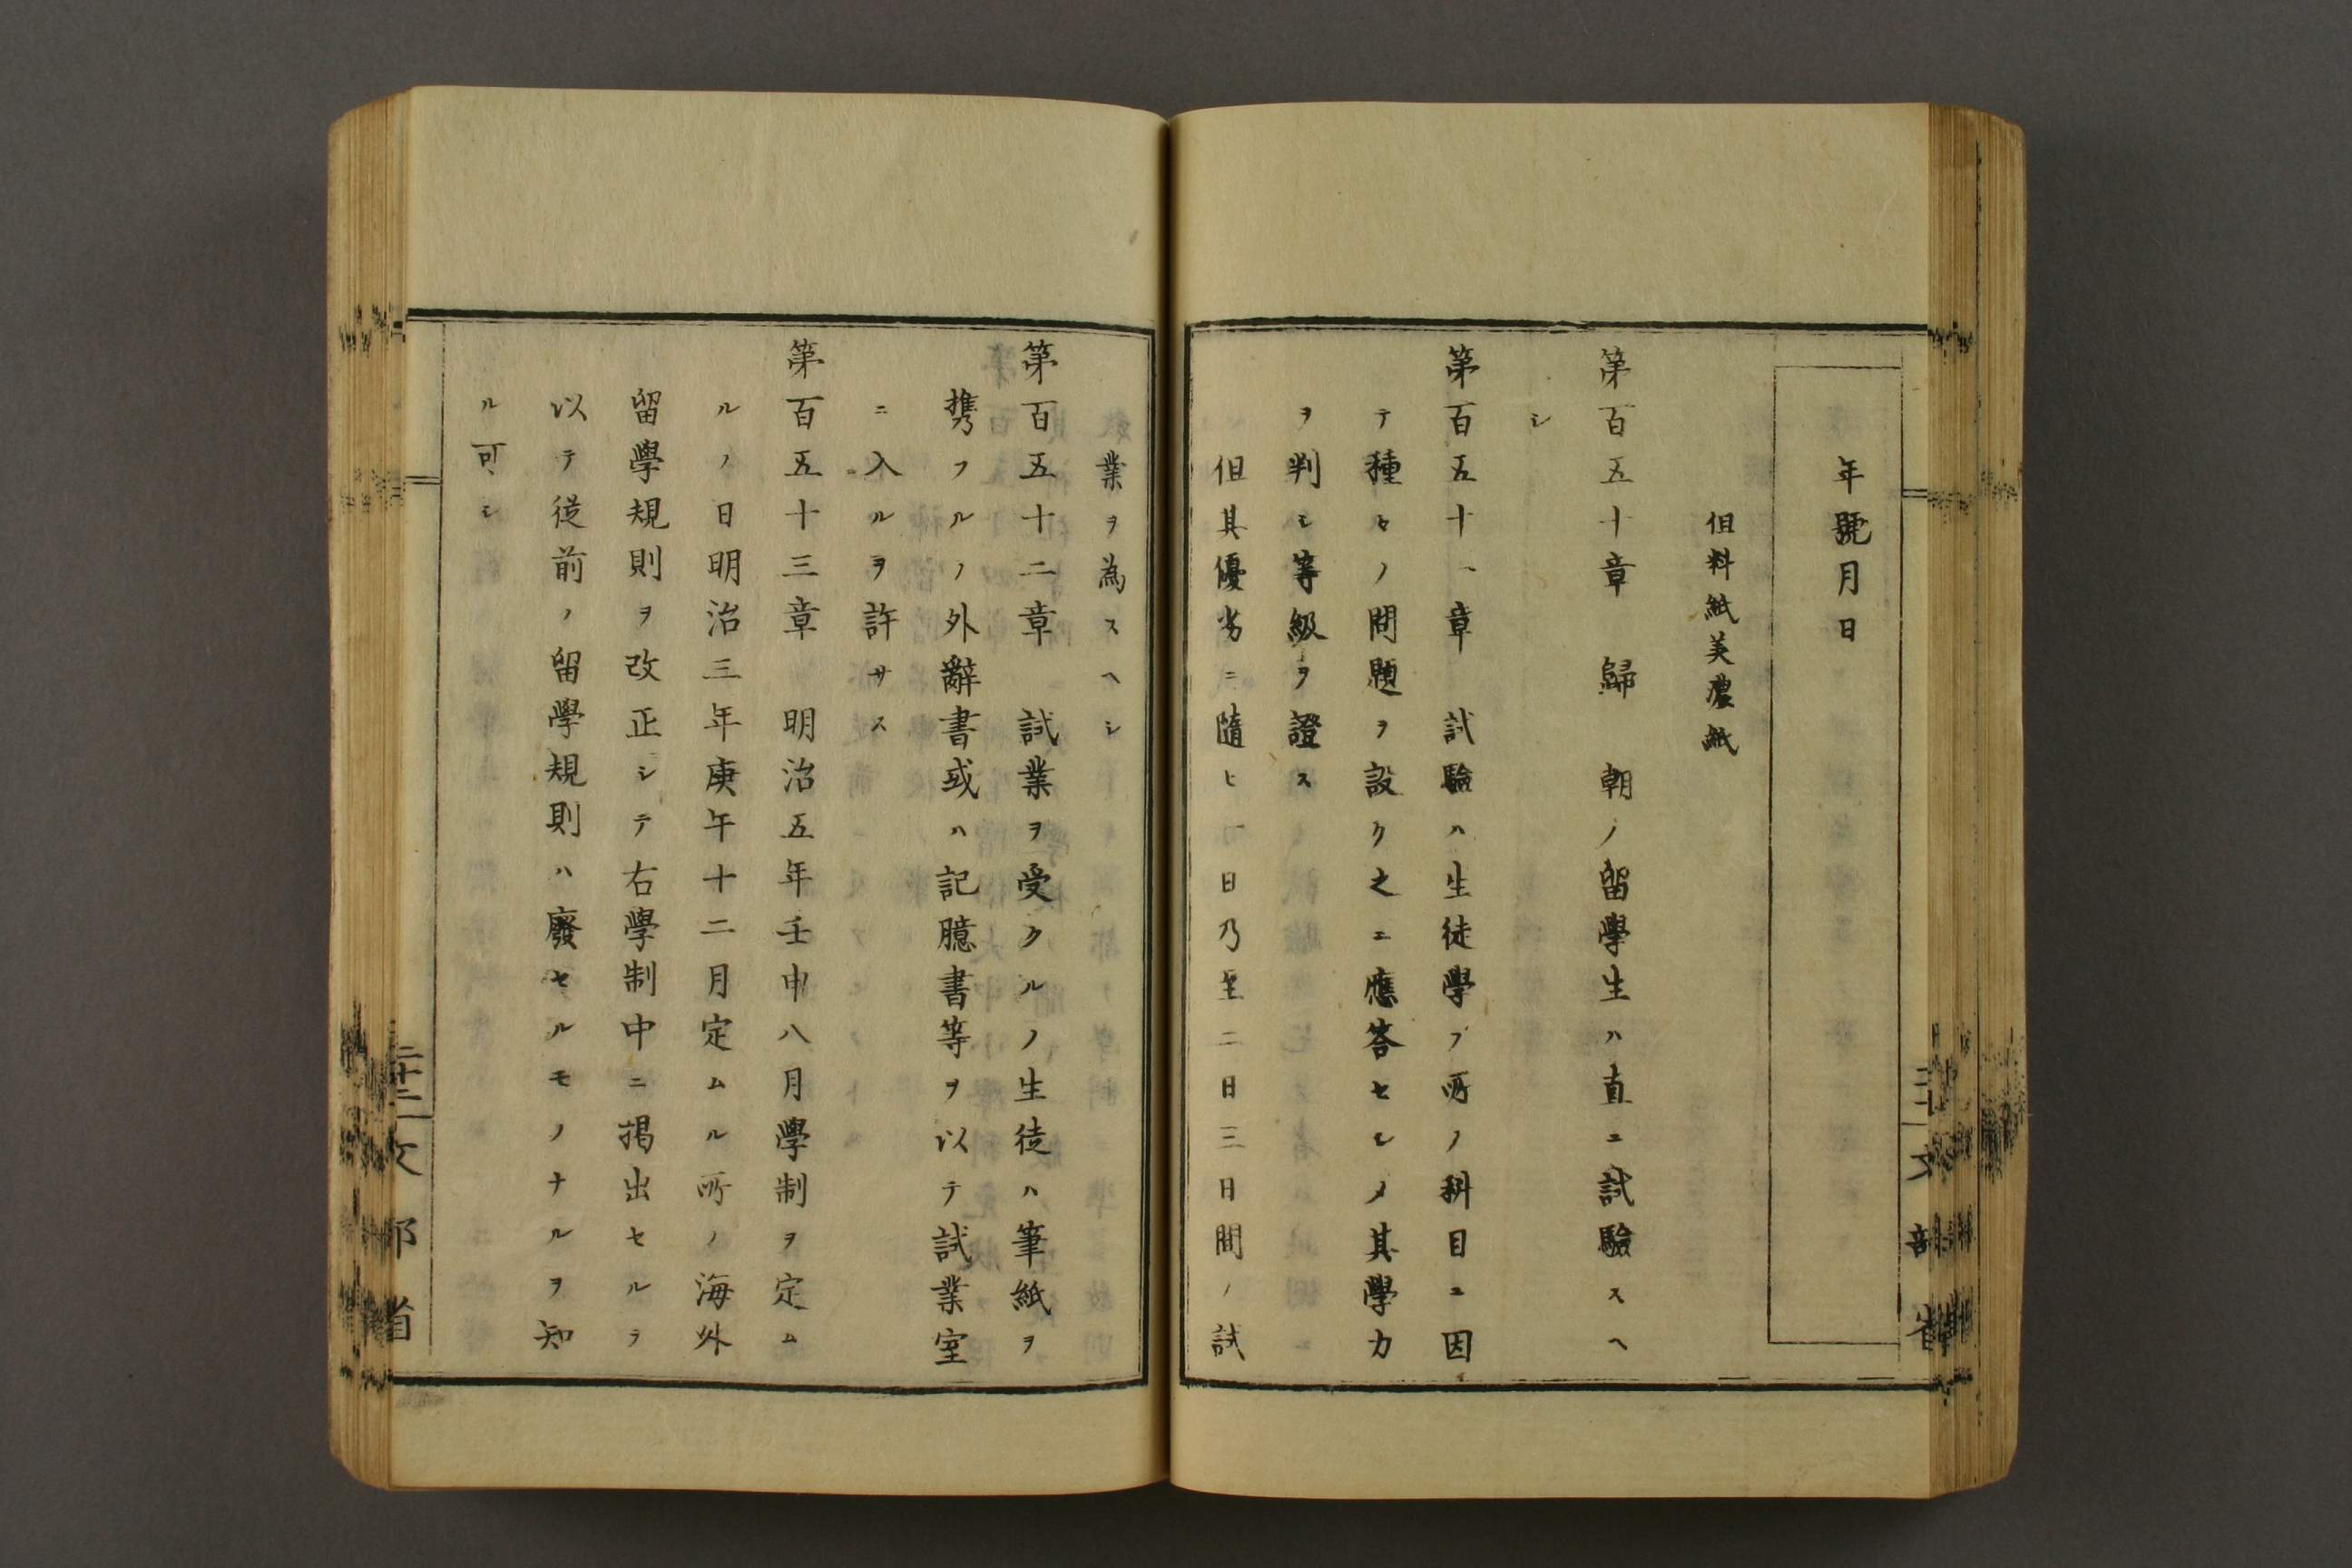 年號月日
但料紙美濃紙
第百五十章 歸 朝ノ留學生ハ直ニ試驗スヘ
シ
第百五十一章 試驗ハ生徒學フ所ノ科目ニ因
テ種々ノ問題ヲ設ク之ニ應答セシメ其學力
ヲ判シ等級ヲ證ス
但其優劣ニ隨ヒ一日乃至二日三日間ノ試
業ヲ為スヘシ
第百五十二章 試業ヲ受クルノ生徒ハ筆紙ヲ
携フルノ外辭書或ハ記臆書等ヲ以テ試業室
ニ入ルヲ許サス
第百五十三章 明治五年壬申八月學制ヲ定ム
ルノ日明治三年庚午十二月定ムル所ノ海外
留學規則ヲ改正シテ右學制中ニ掲出セルヲ
以テ從前ノ留學規則ハ廢セルモノナルヲ知
ル可シ
文部省
文部省